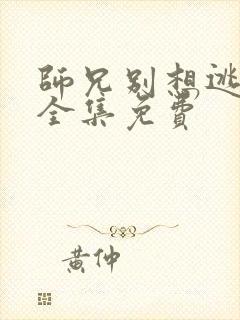 師兄別想逃
全集免費
黃仲